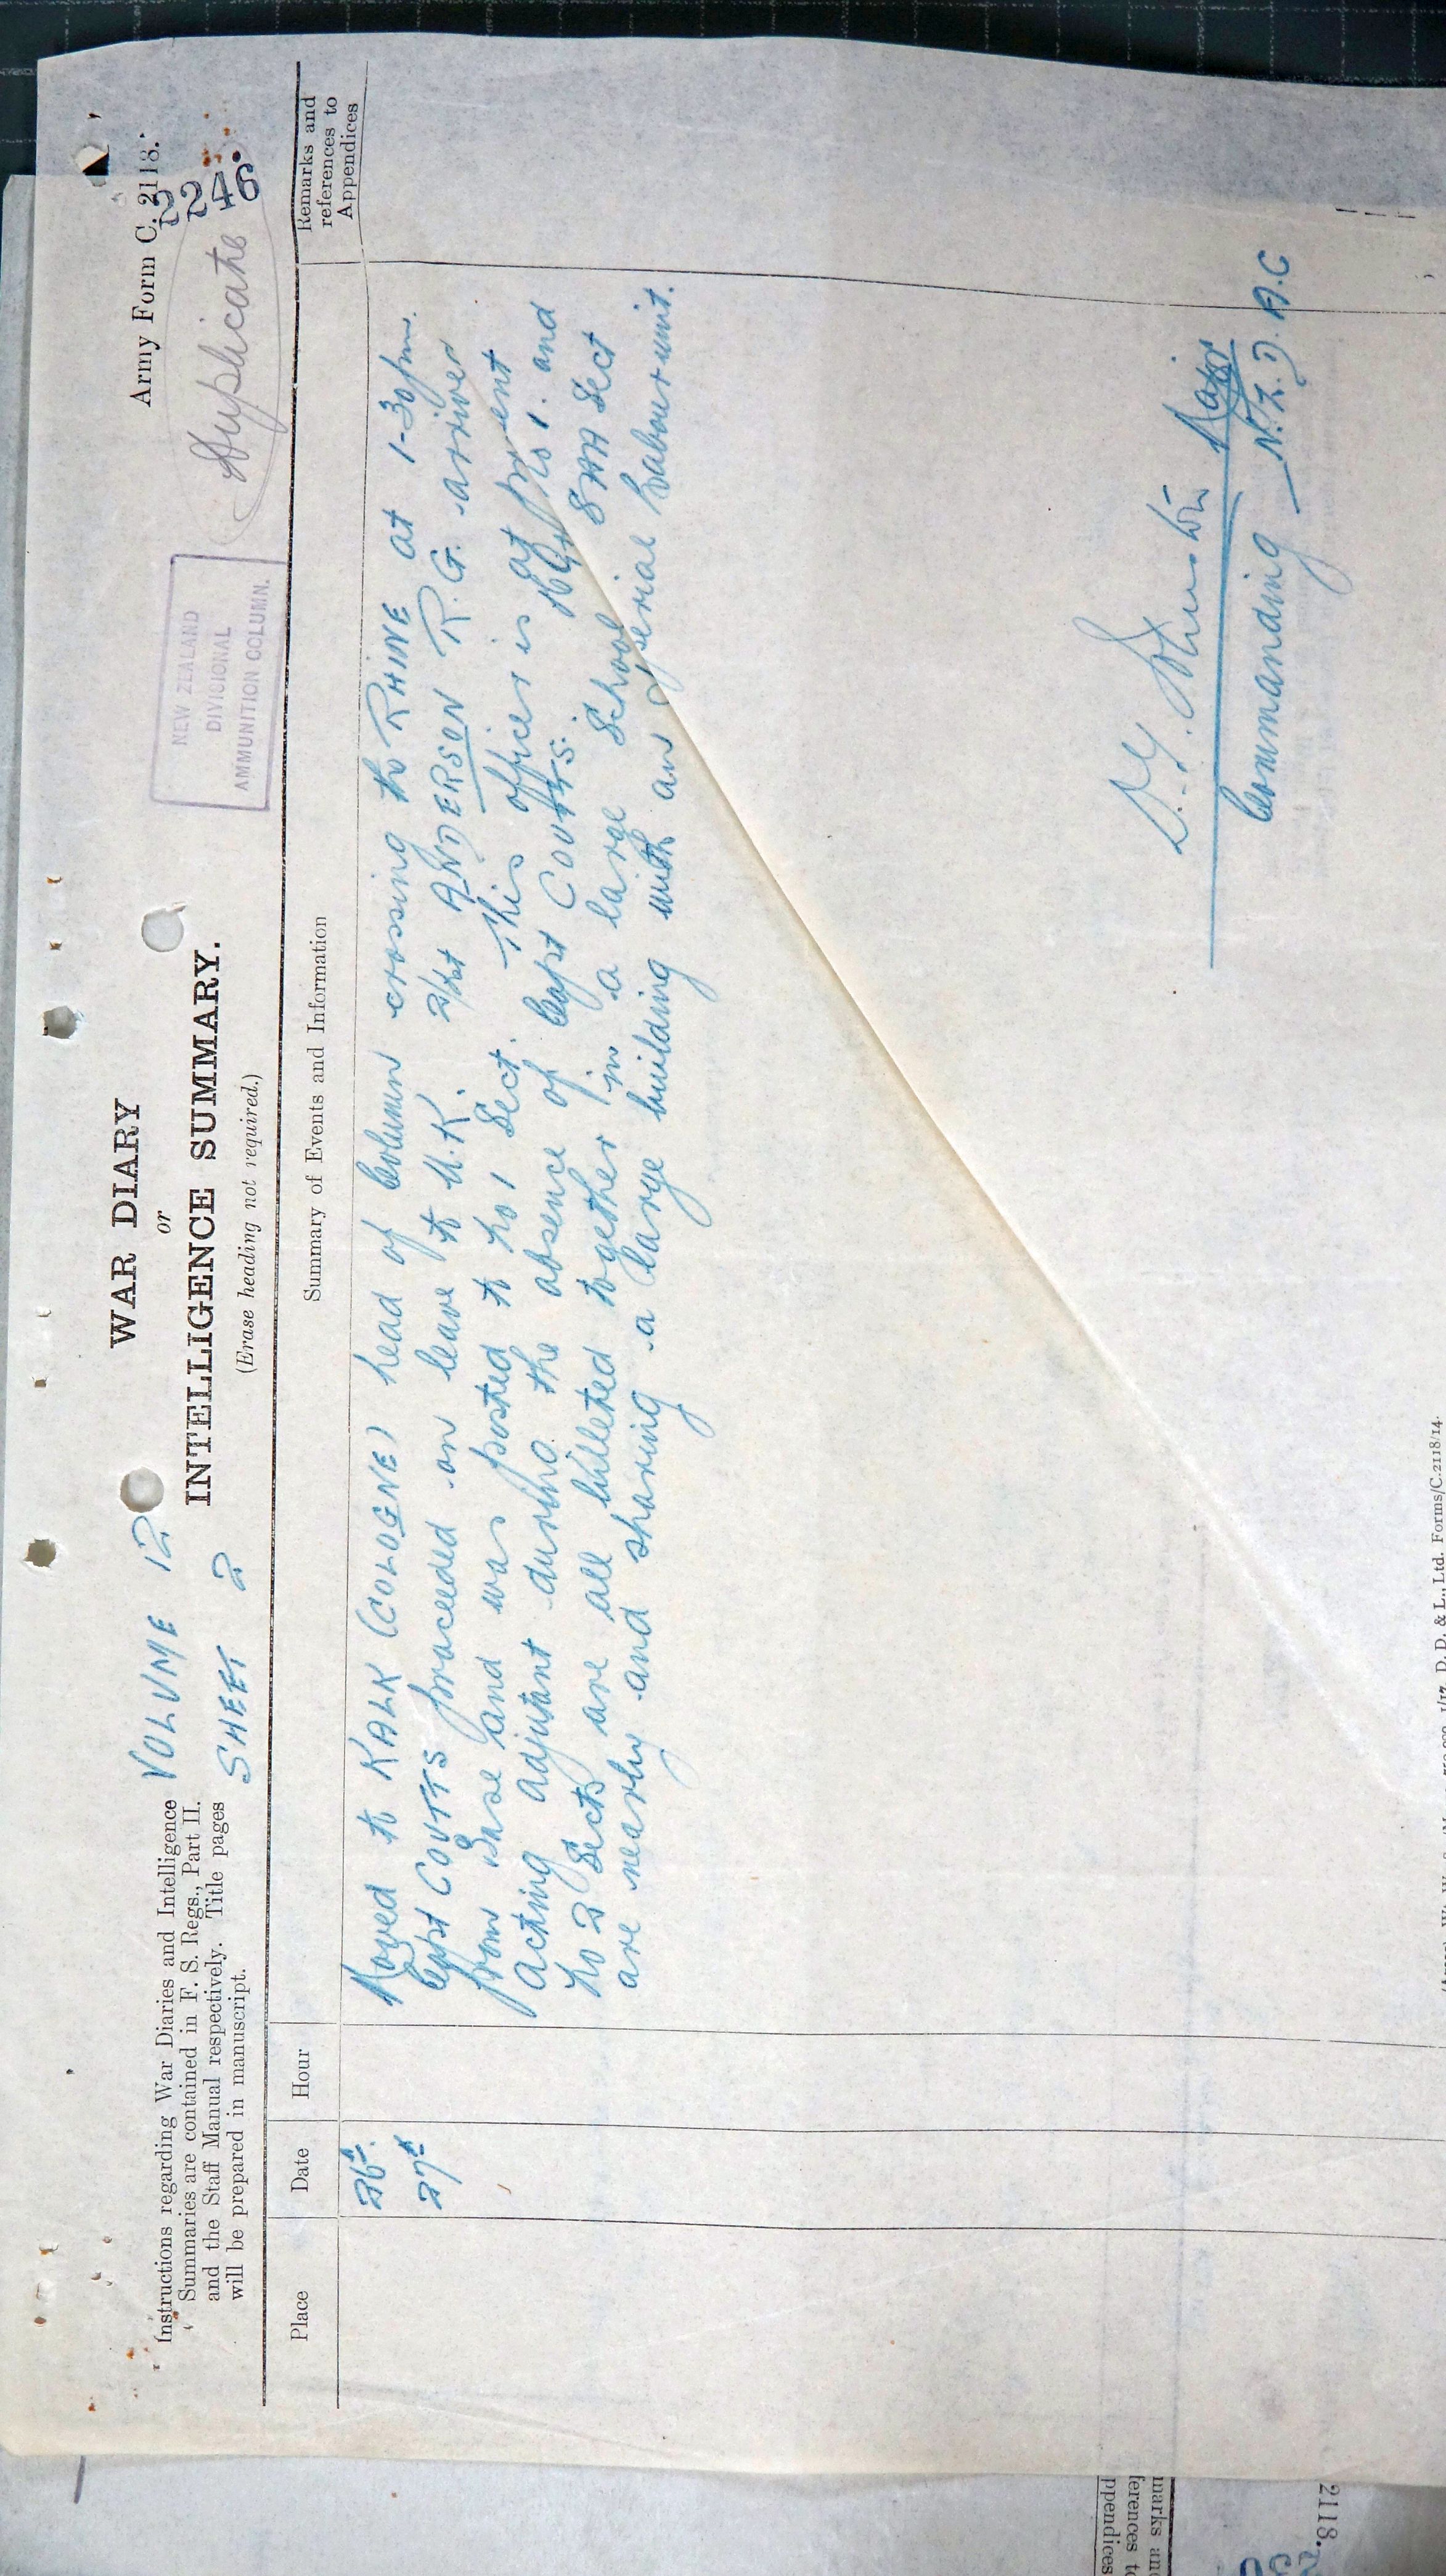 Army Form C. 2118.
2246
Duplicate
NEW ZEALAND
DIVISIONAL
AMMUNITION COLUMN.
WAR DIARY
or
INTELLIGENCE SUMMARY.
(Erase heading not required.)
VOLUME 12
SHEET 2
Instructions regarding War Diaries and Intelligence
Summaries are contained in F. S. Regs., Part II.
and the Staff Manual respectively. Title pages
will be prepared in manuscript.
Place Date Hour Summary of Events and Information Remarks and
references to
Appendices
26th. Moved to KALK (COLOGNE) head of Column crossing the RHINE at 1-30 pm.
27th Capt COUTTS proceeded on leave to U.K. 2/Lt ANDERSON R.G. arrived
from Base and was posted to No 1 Sect. This officer is at present
acting adjutant during the absence of Capt COUTTS. HQrs No 1. and
No 2 Sects are all billeted together in a large School SAA Sect
are nearby and sharing a large building with an Imperial Labour unit.
Major
Commanding N.Z.D.A.C
D. D. & L., Ltd. Forms/C.2118/14.
marks and
ferences to
ppendices
2118.